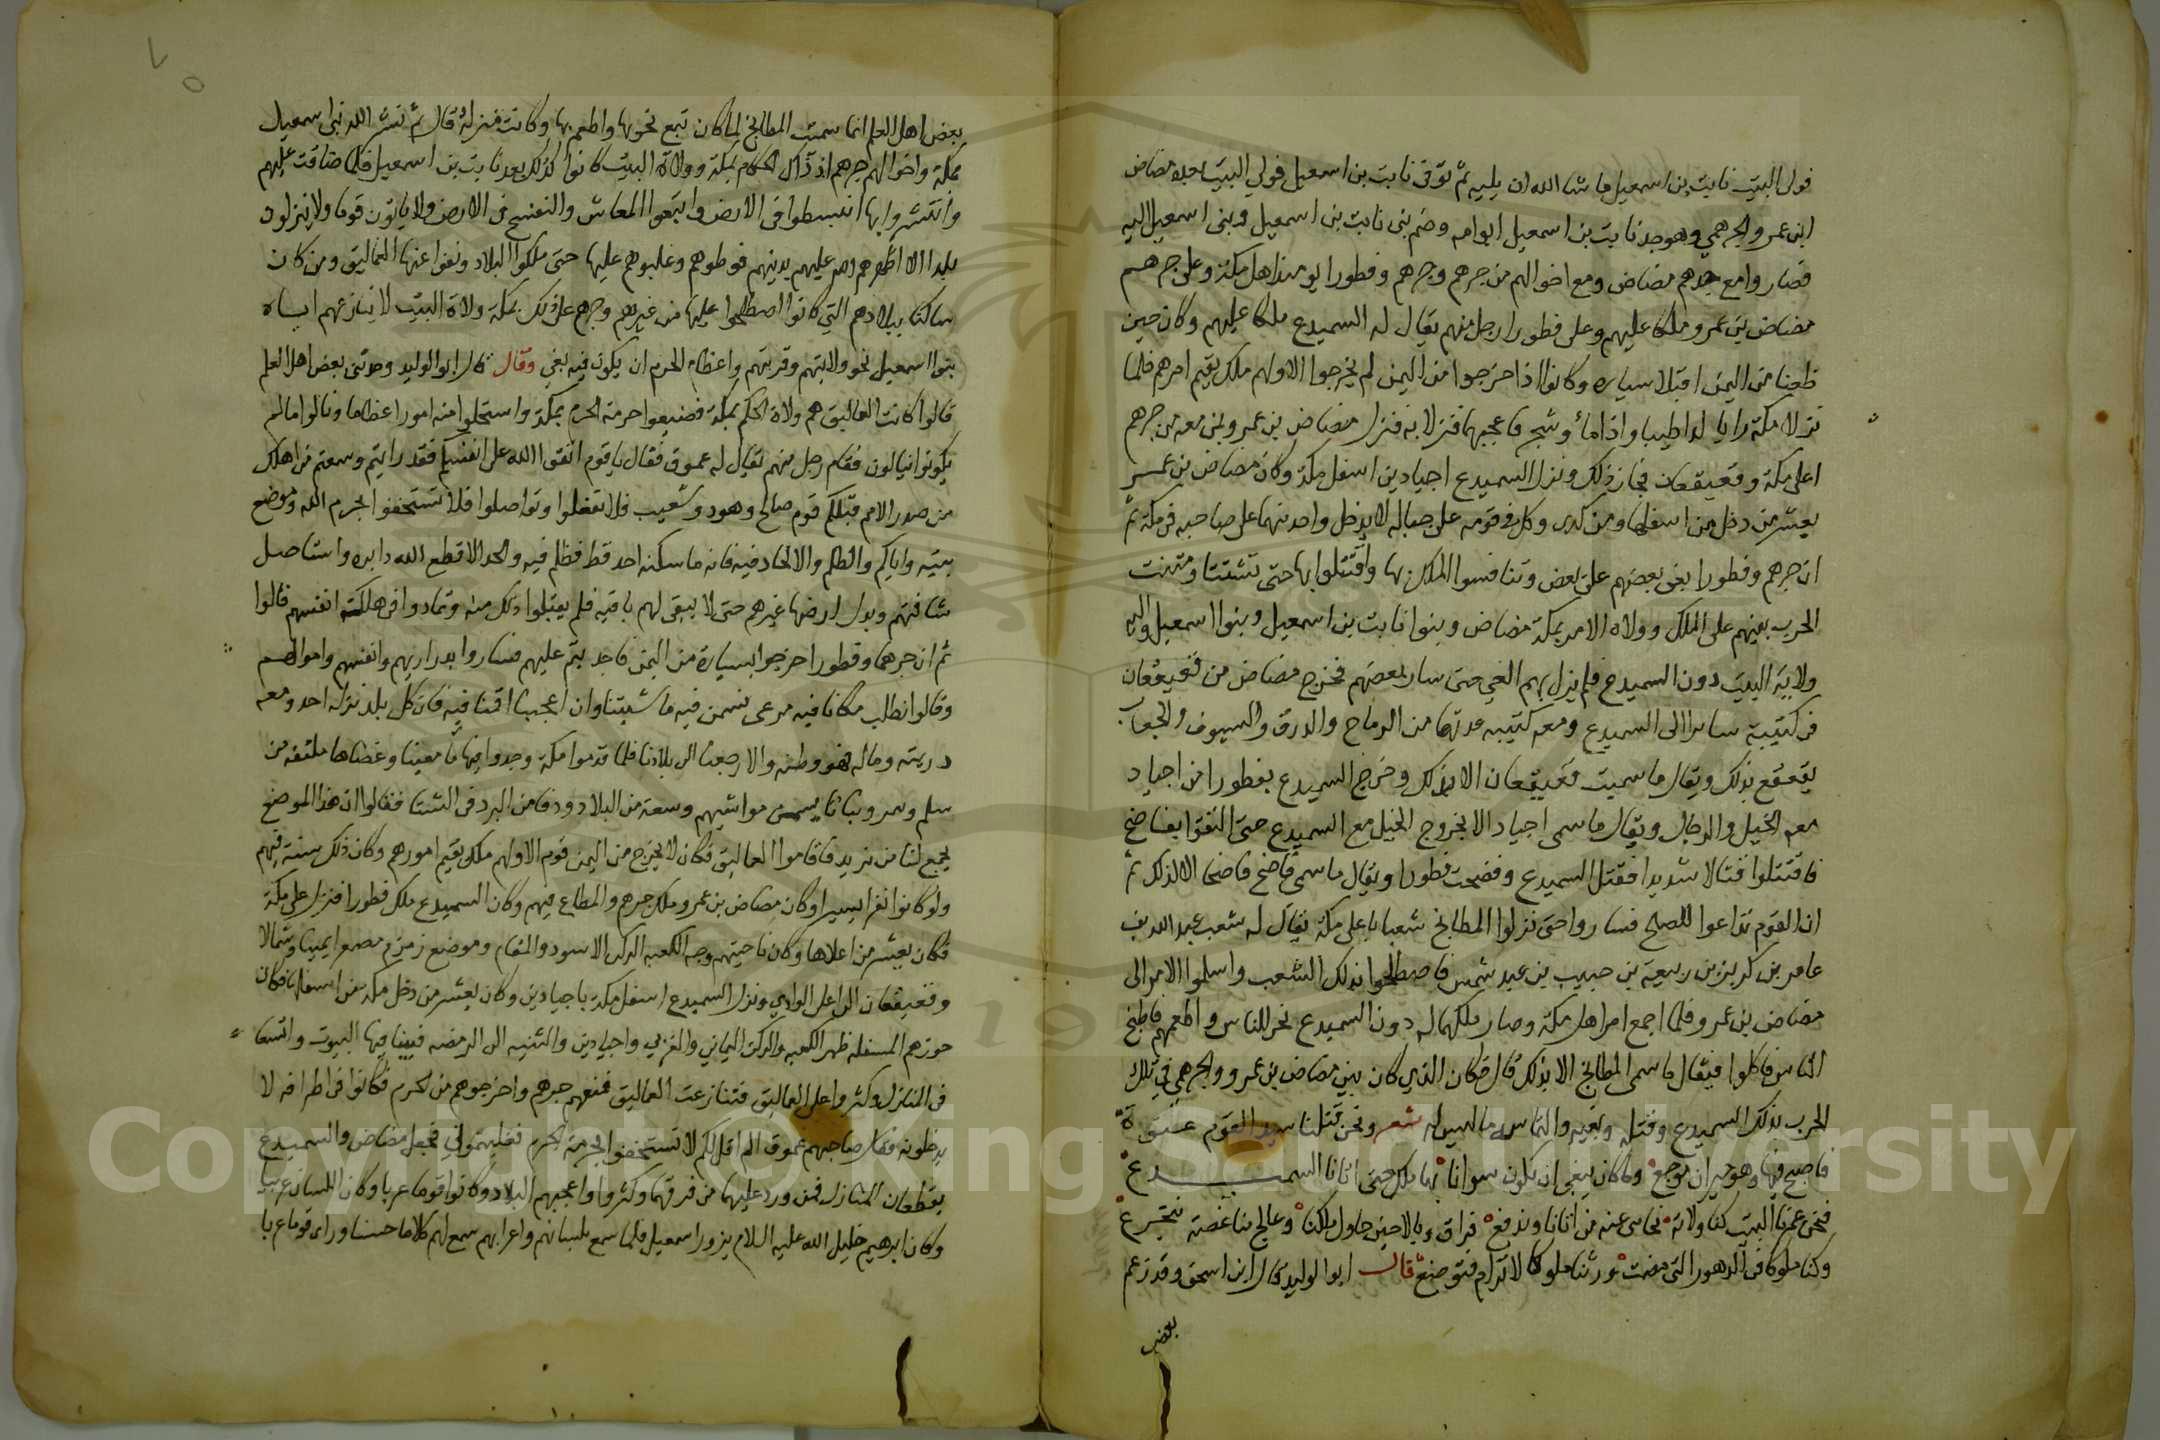 فولي البيت نابت بن اسمعيل ما شا الله ان يليه ثم توفى نابت بن اسمعيل فولي البيت جده مضاض
ابن عمرو الجرهمي وهو جد نابت بن اسمعيل ابوامه وضم بنى نابت بن اسمعيل وبنى اسمعيل اليه
فصاروا مع جدهم مضاض ومع اخوالهم من جرهم وجرهم وقطورا يومئذ اهل مكة وعلى جرهم
مضاض بن عمرو ملكا عليهم وعلى قطورا رجل منهم يقال له السميدع ملكا عليهم وكان حين
ظعنا من اليمن اقبلا سيارة وكانوا اذا خرجوا من اليمن لم يخرجوا الا ولهم ملك يقيم امرهم فلما
نزلا مكة رايا بلدا طيبا واذا ماء وشجر فاعجبهما فنزلا به فنزل مضاض بن عمرو ومن معه من جرهم
اعلى مكة وقعيقعان فحاز ذلك ونزل السميدع اجيادين اسفل مكة وكان مضاض بن عمرو
يعشر من دخل من اسفلها ومن كدى وكل في قومه على حياله لا يدخل واحد منهما على صاحبه في مكة ثم
ان جرهم وقطورا بغى بعضهم على بعض وتنافسوا الملك بها واقتتلوا بها حتى نشبت
الحرب بينهم على الملك وولاة الامر بمكة مضاض وبنوا نابت بن اسمعيل وبنوا اسمعيل واليه
ولاية البيت دون السميدع فلم يزل بهم البغي حتى سار بعضهم فخرج مضاض من قعيقعان
في كتيبة سايرا الى السميدع ومعه كتيبه عدتها من الرماح والدرق والسيوف والجعاب
يقعقع بذلك ويقال ما سميت قعيقعان الا بذلك وخرج السميدع بقطورا من اجياد
معه الخيل والرجال ويقال ما سمى اجياد الا بخروج الخيل مع السميدع حتى التقوا بفاضح
فاقتتلوا قتالا شديدا فقتل السميدع وفضحت قطورا ويقال ما سمى فاضح فاضحا الا لذلك ثم
ان القوم تداعوا للصلح فساروا حتى نزلوا المطابخ شعبا باعلى مكة يقال له شعب عبد الله بن
عامر بن كريز بن ربيعة بن حبيب بن عبد شمس فاصطلحوا بذلك الشعب واسلموا الامر الى
مضاض بن عمرو فلما اجمع امر اهل مكة وصار ملكها له دون السميدع نحر للناس واطعمهم فاطبخ
الناس فاكلوا فيقال ما سمى المطابخ الا بذلك قال فكان الذي كان بين مضاض بن عمرو والجرهمي في تلك
الحرب بذلك السميدع وقتله وبغيه والتماسه ما ليس له شعر ونحن قتلنا سيد القوم عنوة
فاصبح فيها وهو حيران موجع وما كان يبغى ان يكون سوانا بها ملك حتى اتانا السميدع
فنحن عمرنا البيت كنا ولاته نحامى عنه من اتانا وندفع
وكنا ملوكا في الدهور التي مضت نورثنا ملوكا لا ترام فتوضع قال ابوا لوليد قال ابن اسحق وقد زعم
بعض
بعض اهل العلم انما سميت المطابخ لما كان تبع نحر بها واطعم بها وكانت منزله قال ثم نشر الله بنى اسمعيل
بمكة واخوالهم جرهم اذ ذاك الحكام بمكة وولاة البيت كانوا كذلك بعد نابت بن اسمعيل فلما ضاقت عليهم
وانتشروا بها انبسطوا في الارض وابتغوا المعاش والتفسح في الارض ولا ياتون قوما ولا ينزلون
بلدا الا اظهرهم الله عليهم بدينهم فوطوهم وغلبوهم عليها حتى ملكوا البلاد ونفوا عنها العماليق ومن كان
ساكنا ببلادهم التي كانوا اصطلحوا عليها من غيرهم وجرهم على ذلك بمكة ولاة البيت لا ينازعهم اياه
بنوا اسمعيل نحو ولايتهم وقرابتهم واعظام الحرم ان يكون فيه بغي وقال قال ابوالوليد وحدثنى بعض اهل العلم
قالوا كانت العماليق هم ولاة الحكم بمكة فضيعوا حرمة الحرم بمكة واستحلوا منه امورا عظاما ونالوا ما لم
يكونوا ينالون فقام رجل منهم يقال له عموق فقال يا قوم اتقوا الله على انفسكم فقد رايتم وسمعتم من اهلك
من صدر الامم قبلكم قوم صالح وهود وشعيب فلا تفعلوا وتواصلوا فلا تستخفوا بحرم الله وموضع
بيته واياكم والظلم والالحاد فيه فانه ما سكنه احد قط فظلم فيه والحد الا قطع الله دابره واستاصل
شافتهم وبدل ارضها غيرهم حتى لا يبقى لهم باقيه فلم يقبلوا ذلك منه وتمادوا في هلكة انفسهم قالوا
ثم ان جرهما وقطورا خرجوا بسيارة من اليمن فاجدبتم عليهم فساروا بدراريهم وانفسهم واموالهم
وقالوا نطلب مكانا فيه مرعى نسمن فيه ماشيتنا وان اعجبنا اقمنا فيه فان كل بلد نزله احد ومعه
دريته وماله فهو وطنه والا رجعنا الى بلادنا فلما قدموا مكة وجدوا فيها ما معينا وعضاها ملتفه من
سلم وسمر ونباتا يسمن مواشيهم وسعة من البلاد ودفا من البرد في الشتا فقالوا ان هذا الموضع
يجمع لنا من نريد فاقاموا العماليق فكان لا يخرج من اليمن قوم الا ولهم ملك يقيم امورهم وكان ذلك سنة فيهم
ولو كانوا نفرا يسيرا وكان مضاض بن عمرو ملك جرهم والمطاع فيهم وكان السميدع ملك قطورا فنزل على مكة
فكان يعشر من اعلاها وكان ناحيتهم وجه الكعبه الركن الاسود والمقام وموضع زمزم مصعدا يمينا وشمالا
وقعيقعان الى اعلى الوادي ونزل السميدع اسفل مكة باجيادين وكان يعشر من دخل مكة من اسفلها فكان
حوزهم المسفله ظهر الكعبه والركن اليماني والغربي واجيادين والثنيه الى الرمضه فبنيا فيها البيوت واتسعا
في المنازل وكثروا على العماليق فتنازعت العماليق فمنعهم جرهم واخرجوهم من الحرم فكانوا في اطرافه لا
يدخلونه فقال صاحبهم عموق الم اقل لكم لا تستخفوا بحرمة الحرم فغلبتموني فجعل مضاض والسميدع
يقطعان المنازل فمن ورد عليهما من قومهما وكثروا واعجبهم البلاد وكانوا قوما عربا وكان اللسان عربيا
وكان ابرهيم خليل الله عليه السلام يزور اسمعيل فلما سمع بلسانهم واعرابهم سمع لهم كلاما حسنا وراى قوما عربا
Copyright © King Saud University